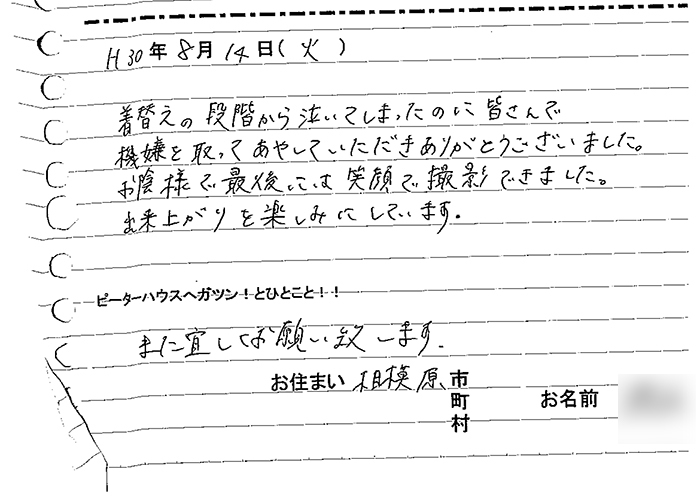 H30年8月14日(火)
着替えの段階から泣いてしまったのに皆さんで
機嫌を取ってあやしていただきありがとうございました。
お陰様で最後には笑顔で撮影できました。
出来上がりを楽しみにしています。
ピーターハウスへガツン！とひとこと！！
また宜しくお願い致します。
お住まい 相模原 市 お名前
町
村